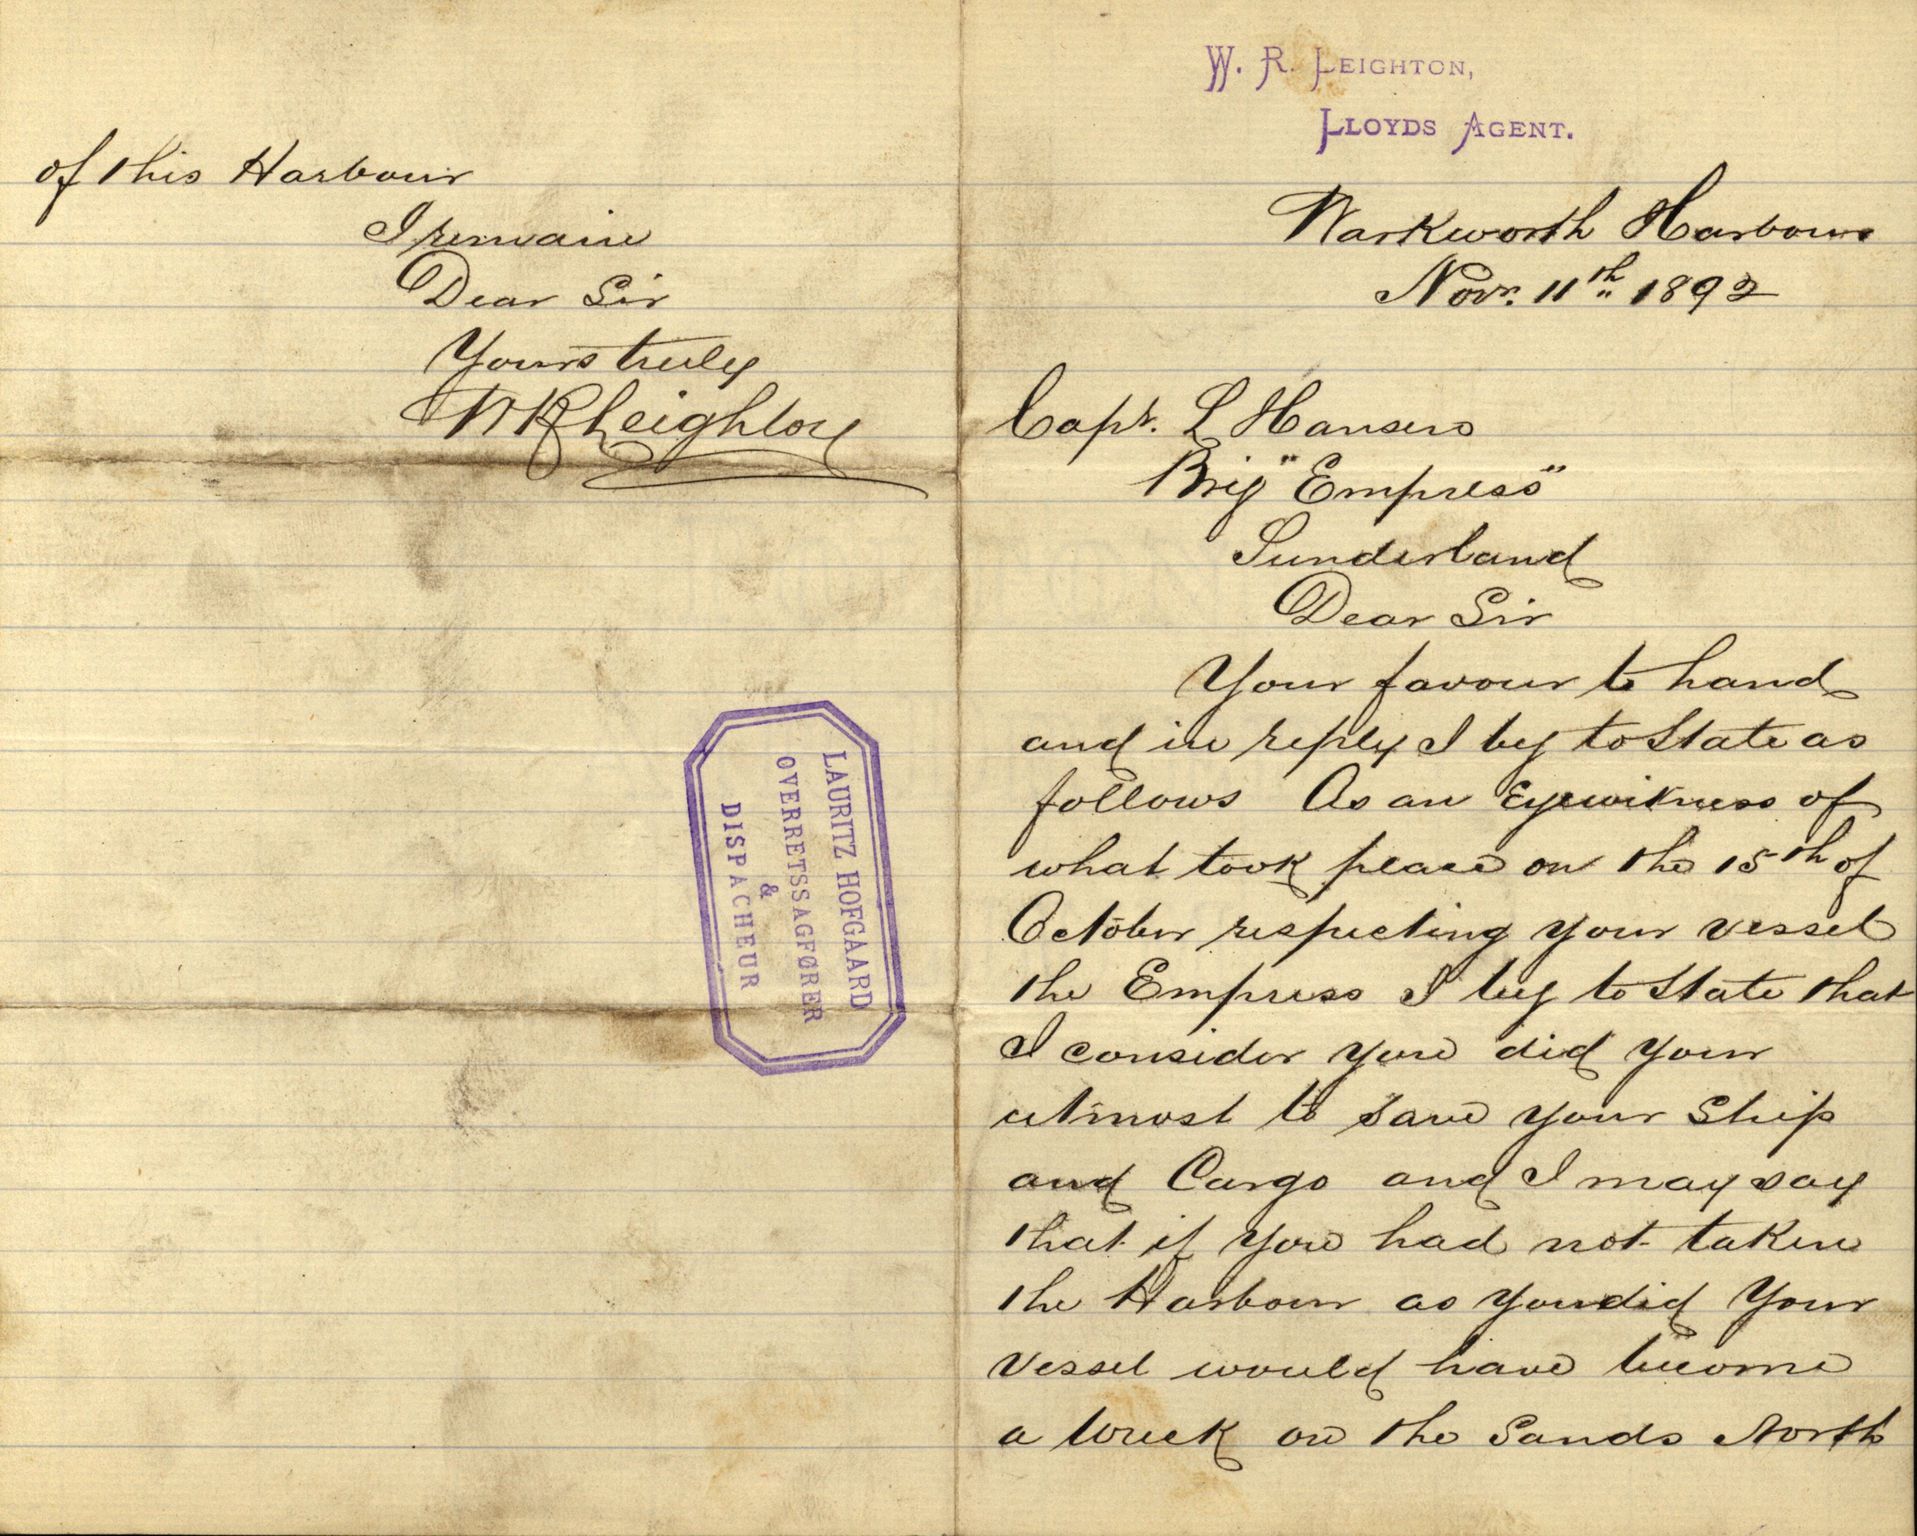 W. R. LEIGHTON,
LLOYDS AGENT.
Warkworth Harbour
Novr. 11th 1892
Capt. L Hansen
Brig "Empress"
Sunderland
Dear Sir
Your favour to hand
and in reply I beg to State as
follows As an Eyewitness of
what took place on the 15th of
October respecting your vessel
the Empress I beg to State that
I consider you did your
utmost to save your Ship
and Cargo and I may say
that if you had not taken
the Harbour as you did Your
vessel would have become
a Wreck on the Sands North
of this Harbour
I remain
Dear Sir
Yours truly
WR Leighton
LAURITZ HOFGAARD
OVERRETSSAGFØRER
&
DISPACHEUR